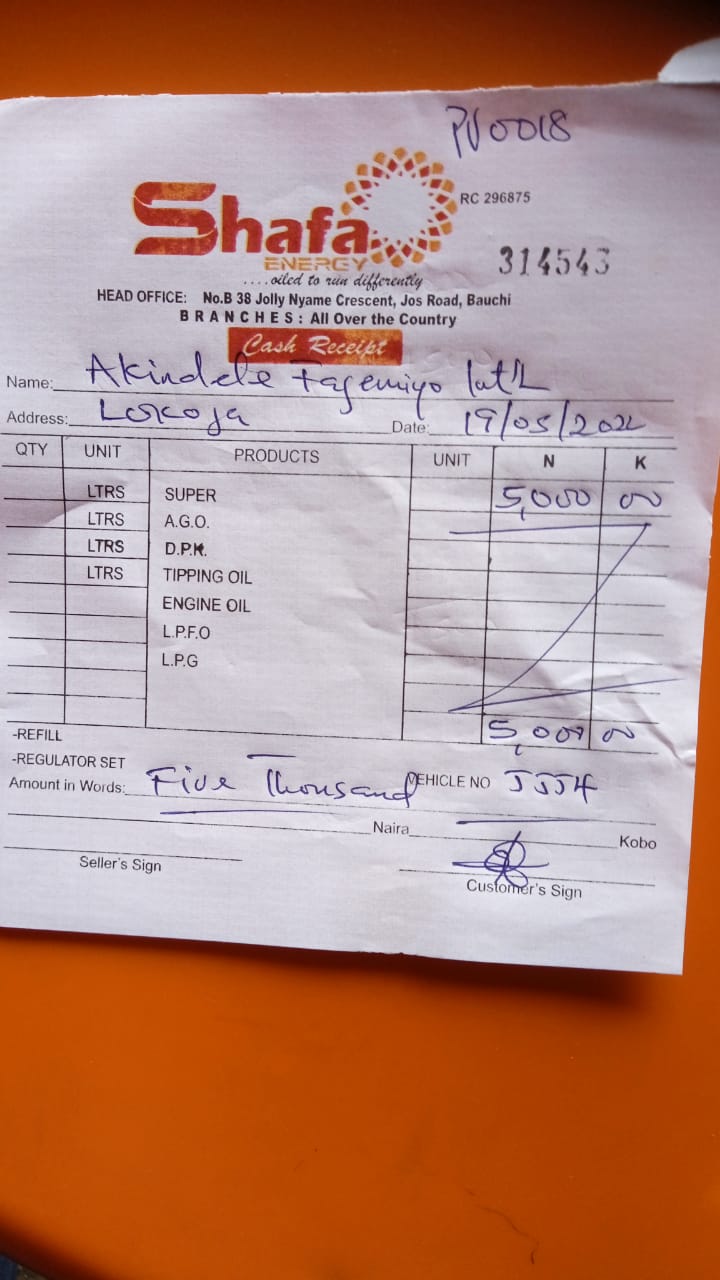 PV0018
Shafa
ENERGY
RC 296875
314543
....oiled to run differently
HEAD OFFICE: No.B 38 Jolly Nyame Crescent, Jos Road, Bauchi
BRANCHES: All Over the Country
Cash Receipt
Name: Akindele Fagemiyo Int'L
Address: Lokoja Date: 19/05/2022
QTY UNIT PRODUCTS UNIT N K
LTRS SUPER 5,000 00
LTRS A.G.O.
LTRS D.P.K.
LTRS TIPPING OIL
ENGINE OIL
L.P.F.O
L.P.G
-REFILL 5,000 00
-REGULATOR SET
Amount in Words: Five Thousand VEHICLE NO
Naira Kobo
Seller's Sign Customer's Sign